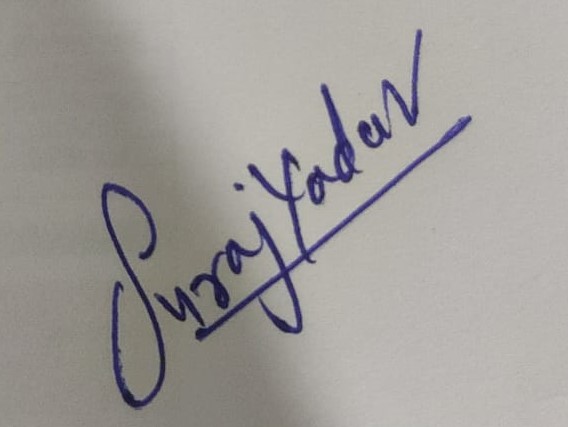 Suraj Yadav